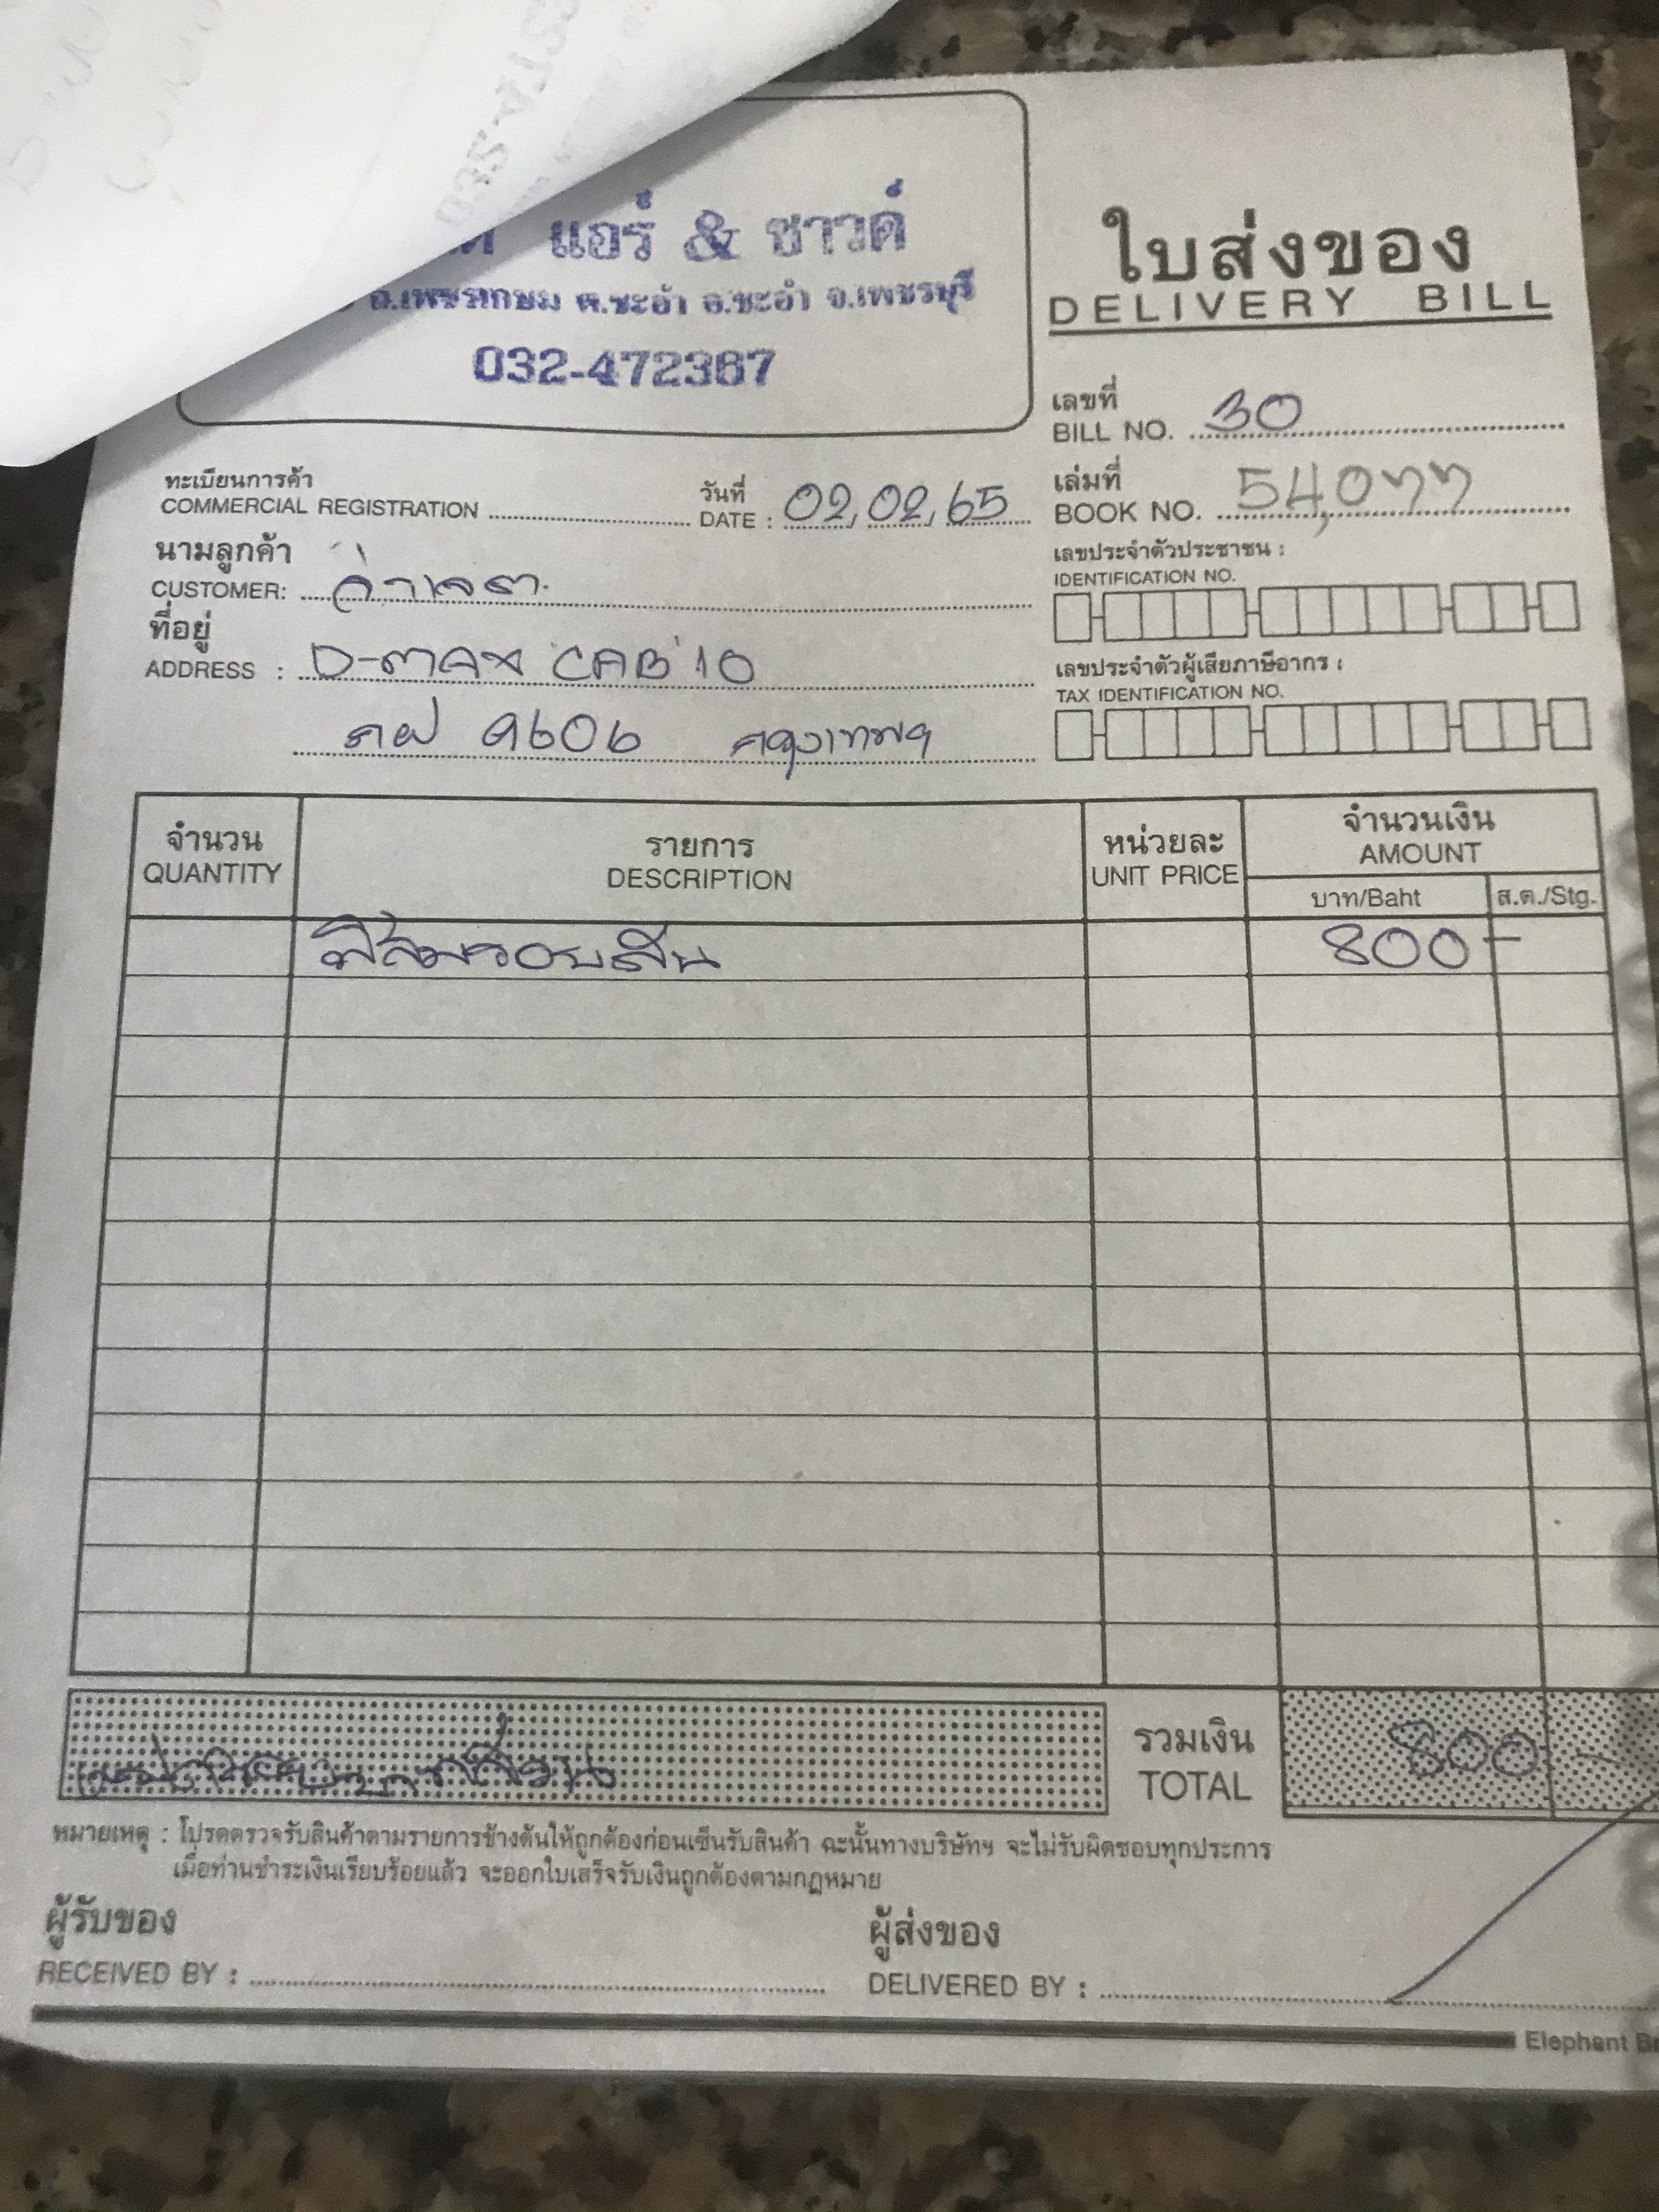 แอร์ & ซาวด์
ถ.เพชรเกษม ต.ชะอำ อ.ชะอำ จ.เพชรบุรี
032-472367
ใบส่งของ
DELIVERY BILL
เลขที่
BILL NO. 30
ทะเบียนการค้า
COMMERCIAL REGISTRATION
วันที่
DATE : 02,02,65
เล่มที่
BOOK NO. 54,077
นามลูกค้า
CUSTOMER:
เลขประจำตัวประชาชน :
IDENTIFICATION NO.
ที่อยู่
ADDRESS : D-MAX CAB 10
9606 กรุงเทพฯ
เลขประจำตัวผู้เสียภาษีอากร :
TAX IDENTIFICATION NO.
จำนวน
QUANTITY
รายการ
DESCRIPTION
หน่วยละ
UNIT PRICE
จำนวนเงิน
AMOUNT
บาท/Baht
ส.ต./Stg.
ฟิล์มรอบคัน 800-
รวมเงิน
TOTAL
800 -
หมายเหตุ : โปรดตรวจรับสินค้าตามรายการข้างต้นให้ถูกต้องก่อนเซ็นรับสินค้า ฉะนั้นทางบริษัทฯ จะไม่รับผิดชอบทุกประการ
เมื่อท่านชำระเงินเรียบร้อยแล้ว จะออกใบเสร็จรับเงินถูกต้องตามกฎหมาย
ผู้รับของ
RECEIVED BY :
ผู้ส่งของ
DELIVERED BY :
Elephant